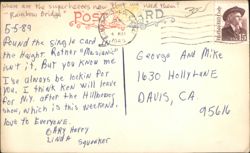 Where are the superheroes now that we need them?
"Rainbow Bridge"
POST CARD
5-5-89
Found the single card in
the Haight Rather "Musians"
isn't it. But you know me
I've always be lookin for
you. I think Ken will leave
for N.Y. after the Hillsboro
show, which is this weekend.
love to Everyone.
Gary Haley
Linda
Squeaker
George And Mike
1630 Holly Lane
DAVIS, CA
95616
15